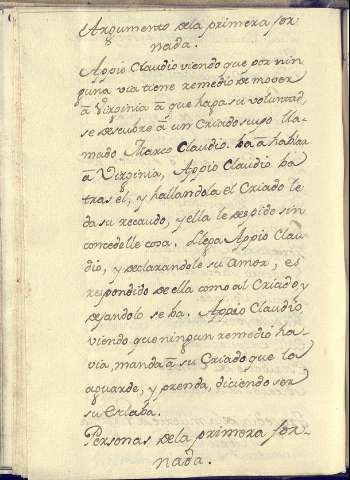 Argumento de la primera Jor-
nada.
Appio Claudio viendo que por nin
guna via tiene remedio de mover
a Virginia a que haga su voluntad,
se descubre a un Criado suyo lla-
mado Marco Claudio. ba a hablar
a Virginia, Appio Claudio ba
tras el, y hallandola el Criado le
da su recaudo, y ella le despide sin
concedelle cosa. Llega Appio Clau-
dio, y declarandole su Amor, es
respondido de ella como al Criado y
dejandolo se ba. Appio Claudio,
viendo que ningun remedio ha-
via, manda a su Criado que la
aguarde, y prenda, diciendo ser
su Esclaba.
Personas de la primera Jor-
nada.